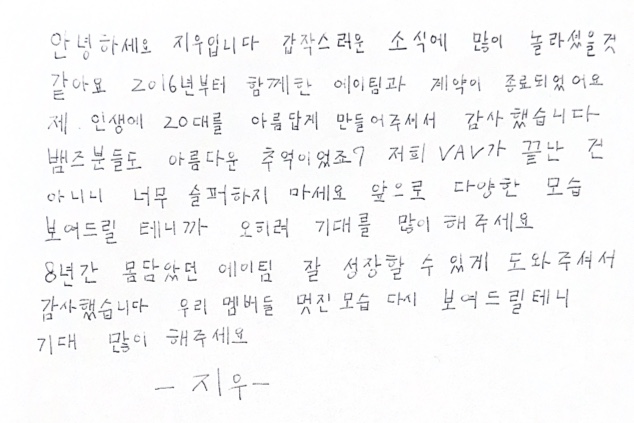 안녕하세요 지우입니다 갑작스러운 소식에 많이 놀라셨을것
같아요 2016년부터 함께한 에이팀과 계약이 종료되었어요
제 인생에 20대를 아름답게 만들어주셔서 감사했습니다
뱀즈분들도 아름다운 추억이었죠? 저희 VAV가 끝난 건
아니니 너무 슬퍼하지 마세요 앞으로 다양한 모습
보여드릴 테니까 오히려 기대를 많이 해주세요
8년간 몸담았던 에이팀 잘 성장할 수 있게 도와주셔서
감사했습니다 우리 멤버들 멋진모습 다시 보여드릴테니
기대 많이 해주세요
- 지우-